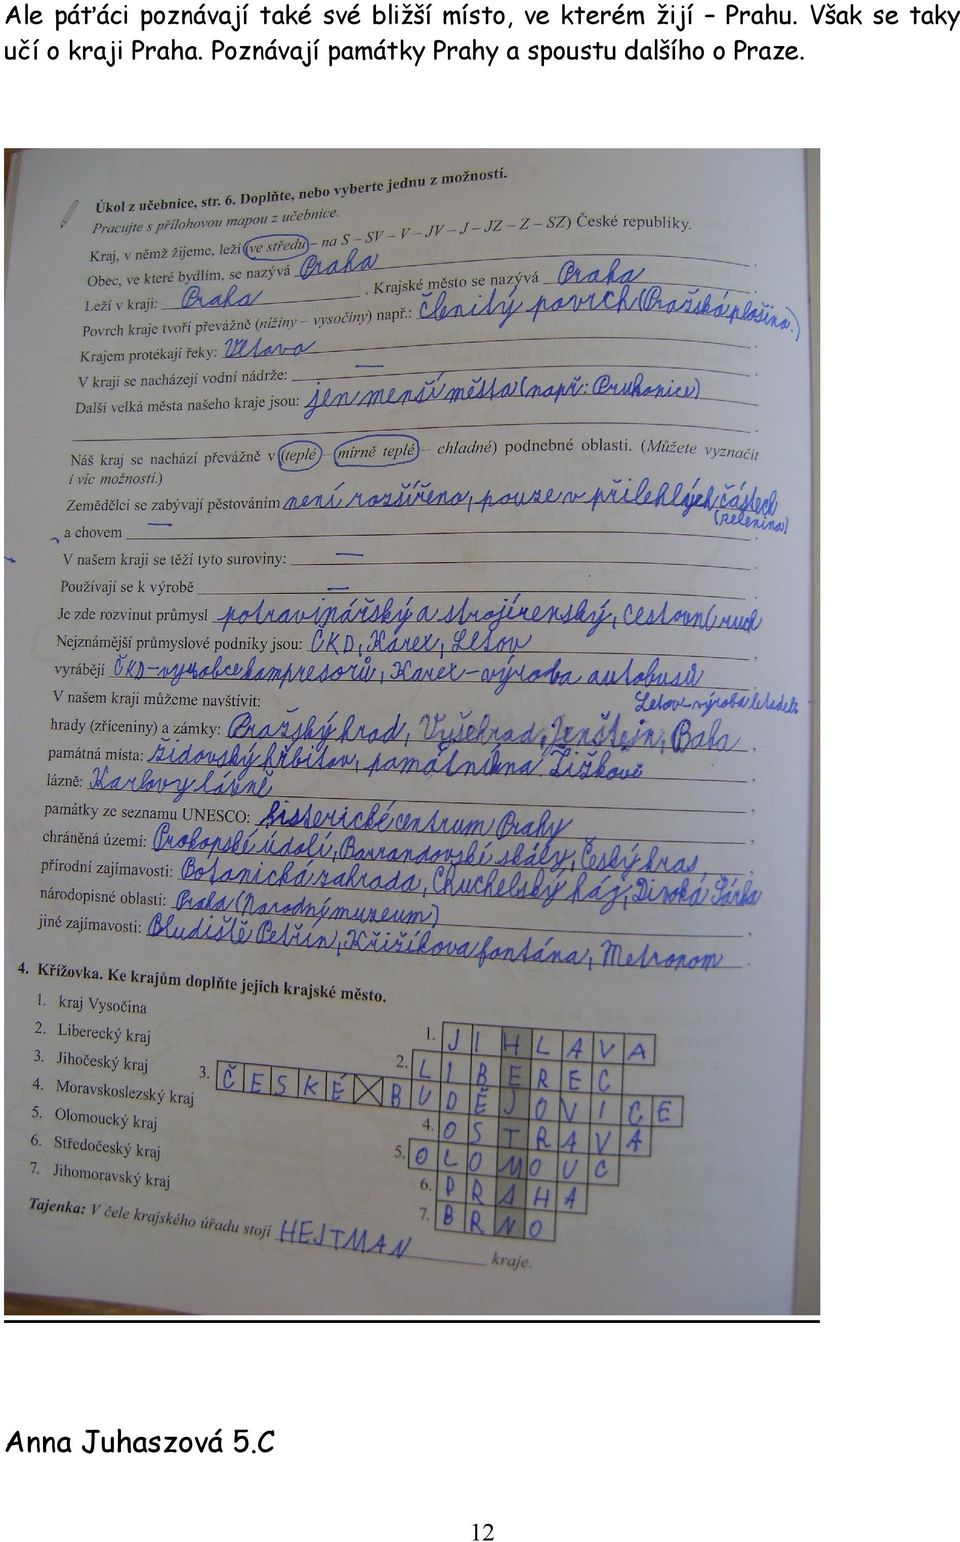 Ale páťáci poznávají také své bližší místo, ve kterém žijí – Prahu. Však se taky
učí o kraji Praha. Poznávají památky Prahy a spoustu dalšího o Praze.
Úkol z učebnice, str. 6. Doplňte, nebo vyberte jednu z možností.
Pracujte s přílohovou mapou z učebnice.
Kraj, v němž žijeme, leží (ve středu – na S – SV – V – JV – J – JZ – Z – SZ) České republiky.
Obec, ve které bydlím, se nazývá Praha.
Leží v kraji: Praha. Krajské město se nazývá Praha.
Povrch kraje tvoří převážně (nížiny – vysočiny) např.: členitý povrch (Pražská plošina.)
Krajem protékají řeky: Vltava.
V kraji se nacházejí vodní nádrže: —.
Další velká města našeho kraje jsou: jen menší města (např: Pruhonice)
Náš kraj se nachází převážně v (teplé – mírně teplé – chladné) podnebné oblasti. (Můžete vyznačit
i víc možností.)
Zemědělci se zabývají pěstováním není rozšířeno, pouze v přilehlých částech
(zelenina)
a chovem —.
V našem kraji se těží tyto suroviny: —.
Používají se k výrobě —.
Je zde rozvinut průmysl potravinářský a strojírenský, cestovní ruch
Nejznámější průmyslové podniky jsou: ČKD, Karex, Letov.
vyrábějí ČKD – vyrobce kompresorů, Karex – výroba autobusů
Letov – výroba letadel.
V našem kraji můžeme navštívit:
hrady (zříceniny) a zámky: Pražský hrad, Vyšehrad, Jenštejn, Baba.
památná místa: Židovský hřbitov, památník na Žižkově.
lázně: Karlovy lázně.
památky ze seznamu UNESCO: historické centrum Prahy.
chráněná území: Prokopské údolí, Barrandovské skály, Český kras.
přírodní zajímavosti: Botanická zahrada, Chuchelský háj, Divoká Šárka
národopisné oblasti: Praha (Národní muzeum).
jiné zajímavosti: Bludiště Petřín, Křižíkova fontána, Metronom.
4. Křížovka. Ke krajům doplňte jejich krajské město.
1. kraj Vysočina
2. Liberecký kraj
3. Jihočeský kraj
4. Moravskoslezský kraj
5. Olomoucký kraj
6. Středočeský kraj
7. Jihomoravský kraj
1. JIHLAVA
2. LIBEREC
3. ČESKÉ BUDĚJOVICE
4. OSTRAVA
5. OLOMOUC
6. PRAHA
7. BRNO
Tajenka: V čele krajského úřadu stojí HEJTMAN kraje.
Anna Juhaszová 5.C
12